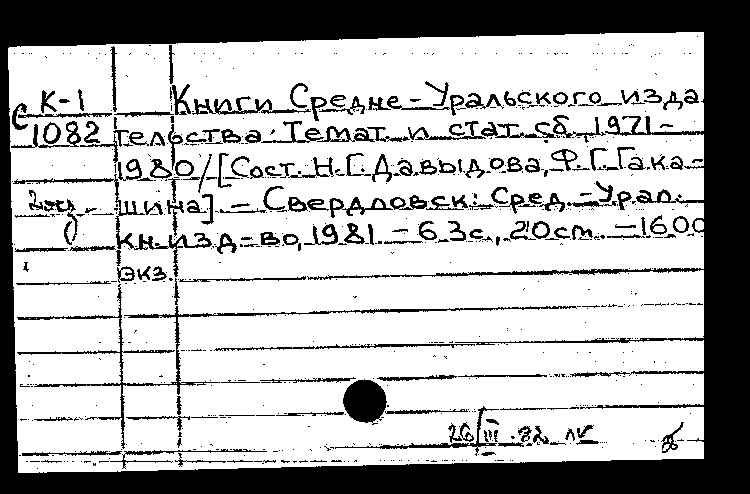 К-1 Книги Средне-Уральского изда
С 1082 тельства: Темат. и стат. сб., 1971-
1980 / [Сост. Н.Г. Давыдова, Ф.Г. Гака-
2 экз. шина]. - Свердловск: Сред.-Урал.
кн. изд-во, 1981 - 63с., 20 ст. - 1600
экз.
26/III.82